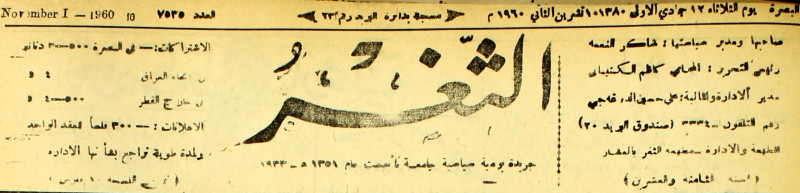 البصرة يوم الثلاثاء ١٢ جمادي الاولى ١٣٨٠ - ١ تشرين الثاني ١٩٦٠ م
مسجلة بدائرة البريد رقم ٢٣
العدد ٧٥٣٥
November 1 - 1960 10
صاحبها ومدير سياستها : شاكر النعمه
رئيس التحرير : المحامي كاظم
مدير الادارة والمالية : علي حسين
رقم التلفون - ٣٣٤ (صندوق البريد ٢٠)
الطبعة والادارة - مطبعة الثغر بالعشار
(السنة الثامنة والعشرين)
الثغر
جريدة يومية سياسية جامعة تأسست عام ١٣٥١ هـ - ١٩٣٣
الاشتراكات : - في البصرة ٥٠٠ - ٣ دنانير
انحاء العراق ٤ د
خارج القطر ٥٠٠ - ٤ د
الاعلانات : - ٣٠٠ فلساً للعقد الواحد
ولمدة طويلة تراجع بشأنها الادارة